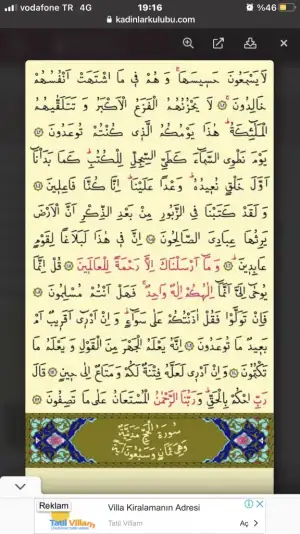 vodafone TR 4G 19:16 %46
kadinlarkulubu.com
لَا يَسْمَعُونَ حَسِيسَهَا وَهُمْ فِي مَا اشْتَهَتْ اَنْفُسُهُمْ
خَالِدُونَ لَا يَحْزُنُهُمُ الْفَزَعُ الْاَكْبَرُ وَتَتَلَقّٰيهُمُ
الْمَلٰٓئِكَةُ هٰذَا يَوْمُكُمُ الَّذِي كُنْتُمْ تُوعَدُونَ
يَوْمَ نَطْوِي السَّمَٓاءَ كَطَيِّ السِّجِلِّ لِلْكُتُبِ كَمَا بَدَاْنَٓا
اَوَّلَ خَلْقٍ نُعِيدُهُ وَعْدًا عَلَيْنَا اِنَّا كُنَّا فَاعِلِينَ
وَلَقَدْ كَتَبْنَا فِي الزَّبُورِ مِنْ بَعْدِ الذِّكْرِ اَنَّ الْاَرْضَ
يَرِثُهَا عِبَادِيَ الصَّالِحُونَ اِنَّ فِي هٰذَا لَبَلَاغًا لِقَوْمٍ
عَابِدِينَ وَمَٓا اَرْسَلْنَاكَ اِلَّا رَحْمَةً لِلْعَالَمِينَ قُلْ اِنَّمَا
يُوحٰٓى اِلَيَّ اَنَّمَٓا اِلٰهُكُمْ اِلٰهٌ وَاحِدٌ فَهَلْ اَنْتُمْ مُسْلِمُونَ
فَاِنْ تَوَلَّوْا فَقُلْ اٰذَنْتُكُمْ عَلٰى سَوَٓاءٍ وَاِنْ اَدْرِٓي اَقَرِيبٌ اَمْ
بَعِيدٌ مَا تُوعَدُونَ اِنَّهُ يَعْلَمُ الْجَهْرَ مِنَ الْقَوْلِ وَيَعْلَمُ مَا
تَكْتُمُونَ وَاِنْ اَدْرِي لَعَلَّهُ فِتْنَةٌ لَكُمْ وَمَتَاعٌ اِلٰى حِينٍ قَالَ
رَبِّ احْكُمْ بِالْحَقِّ وَرَبُّنَا الرَّحْمٰنُ الْمُسْتَعَانُ عَلٰى مَا تَصِفُونَ
سُورَةُ الْحَجِّ مَدَنِيَّةٌ
وَهِيَ ثَمَانٍ وَسَبْعُونَ اٰيَةً
Reklam
Villa Kiralamanın Adresi
Tatil Villam
Tatil Villam
Aç